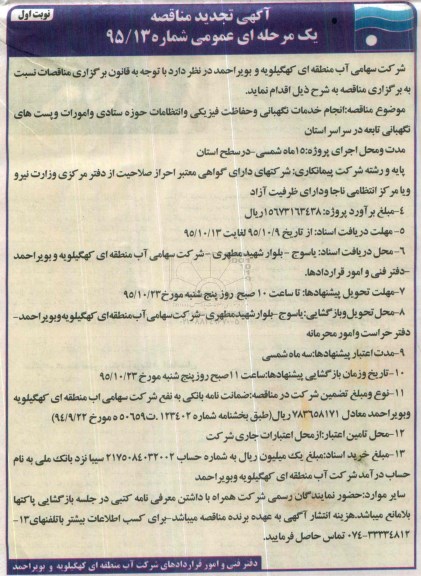 آگهی تجدید مناقصه
نوبت اول
یک مرحله ای عمومی شماره ۹۵/۱۳
شرکت سهامی آب منطقه ای کهگیلویه و بویراحمد در نظر دارد با توجه به قانون برگزاری مناقصات نسبت
به برگزاری مناقصه به شرح ذیل اقدام نماید.
موضوع مناقصه:انجام خدمات نگهبانی وحفاظت فیزیکی وانتظامات حوزه ستادی وامورات وپست های
نگهبانی تابعه در سراسر استان
مدت ومحل اجرای پروژه:۱۵ماه شمسی-درسطح استان
پایه و رشته شرکت پیمانکاری: شرکتهای دارای گواهی معتبر احراز صلاحیت از دفتر مرکزی وزارت نیرو
ویا مرکز انتظامی ناجا ودارای ظرفیت آزاد
۴-مبلغ برآورد پروژه: ۱۵۶۷۳۱۶۳۴۳۸ریال
۵- مهلت دریافت اسناد: از تاریخ ۹۵/۱۰/۹ لغایت ۹۵/۱۰/۱۳
۶-محل دریافت اسناد: یاسوج -بلوار شهید مطهری -شرکت سهامی آب منطقه ای کهگیلویه و بویراحمد
-دفتر فنی و امور قراردادها.
۷-مهلت تحویل پیشنهادها: تا ساعت ۱۰ صبح روز پنج شنبه مورخ ۹۵/۱۰/۲۳
۸-محل تحویل وبازگشایی:یاسوج -بلوار شهید مطهری -شرکت سهامی آب منطقه ای کهگیلویه وبویراحمد-
دفتر حراست وامور محرمانه
۹-مدت اعتبار پیشنهادها:سه ماه شمسی
۱۰-تاریخ وزمان بازگشایی پیشنهادها:ساعت ۱۱صبح روز پنج شنبه مورخ ۹۵/۱۰/۲۳
۱۱-نوع ومبلغ تضمین شرکت در مناقصه:ضمانت نامه بانکی به نفع شرکت سهامی اب منطقه ای کهگیلویه
وبویراحمد معادل ۷۸۳۶۵۸۱۷۱ ریال(طبق بخشنامه شماره ۱۲۳۴۰۲ .ت۵۰۶۵۹ ه مورخ ۹۴/۹/۲۲)
۱۲-محل تامین اعتبار:ازمحل اعتبارات جاری شرکت
۱۳-مبلغ خرید اسناد:مبلغ یک میلیون ریال به شماره حساب ۲۱۷۵۰۸۴۰۳۲۰۰۲ سیبا نزد بانک ملی به نام
حساب درآمد شرکت آب منطقه ای کهگیلویه وبویراحمد
سایر موارد:حضور نمایندگان رسمی شرکت همراه با داشتن معرفی نامه کتبی در جلسه بازگشایی پاکتها
بلامانع میباشد.هزینه انتشار آگهی به عهده برنده مناقصه میباشد-برای کسب اطلاعات بیشتر باتلفنهای۱۳-
۰۷۴-۳۳۳۳۴۸۱۲ تماس حاصل فرمایید.
دفتر فنی و امور قراردادهای شرکت آب منطقه ای کهگیلویه و بویراحمد